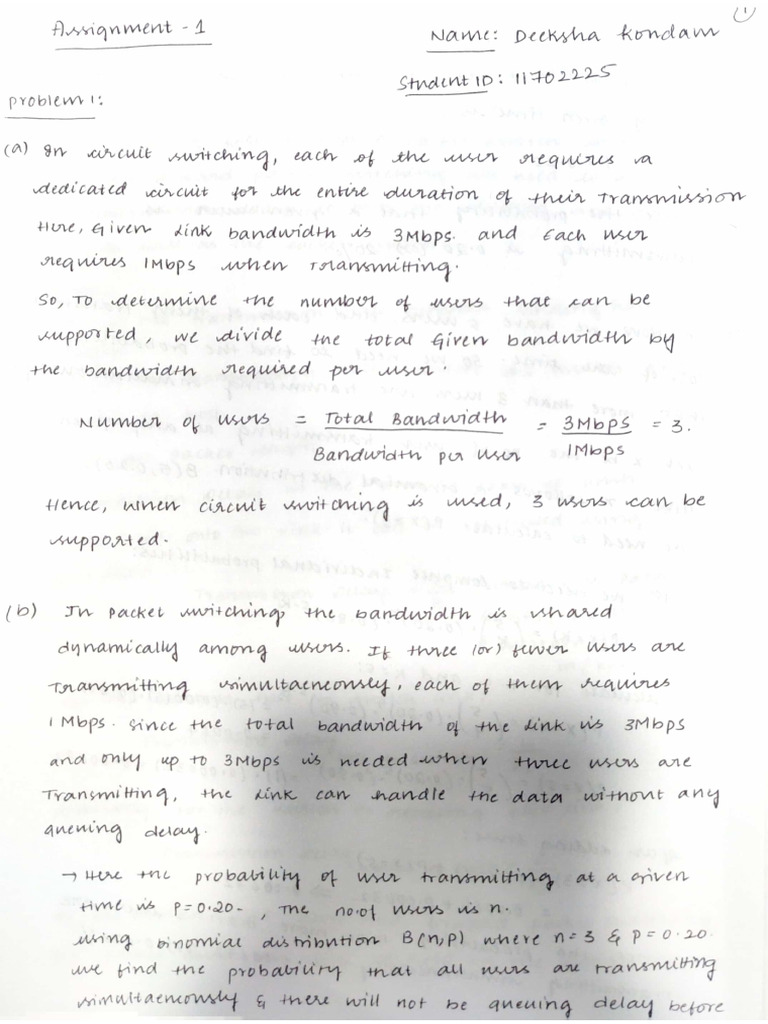 1
Assignment - 1
Name: Deeksha Kondam
Student ID: 11702225
Problem 1:
(a) In circuit switching, each of the user requires a
dedicated circuit for the entire duration of their Transmission
Here, Given Link bandwidth is 3Mbps. and Each user
requires 1Mbps when Transmitting.
So, To determine the number of users that can be
supported, we divide the total Given bandwidth by
the bandwidth required per user.
Number of users = Total Bandwidth / Bandwidth per user = 3Mbps / 1Mbps = 3.
Hence, when circuit switching is used, 3 users can be
supported.
(b) In packet switching the bandwidth is shared
dynamically among users. If three (or) fewer users are
Transmitting simultaeneously, each of them requires
1 Mbps. since the total bandwidth of the link is 3Mbps
and only up to 3Mbps is needed when three users are
Transmitting, the link can handle the data without any
queuing delay.
→ Here the probability of user transmitting at a given
time is P=0.20- , The no.of users is n.
using binomial distribution B(n,p) where n=3 & p=0.20.
we find the probability that all users are transmitting
simultaeneously & there will not be queuing delay before